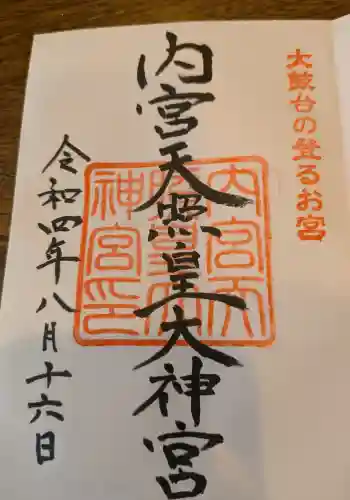 太鼓台の登るお宮
内宮天照皇大神宮
内宮天
照皇大
神宮印
令和四年八月十六日